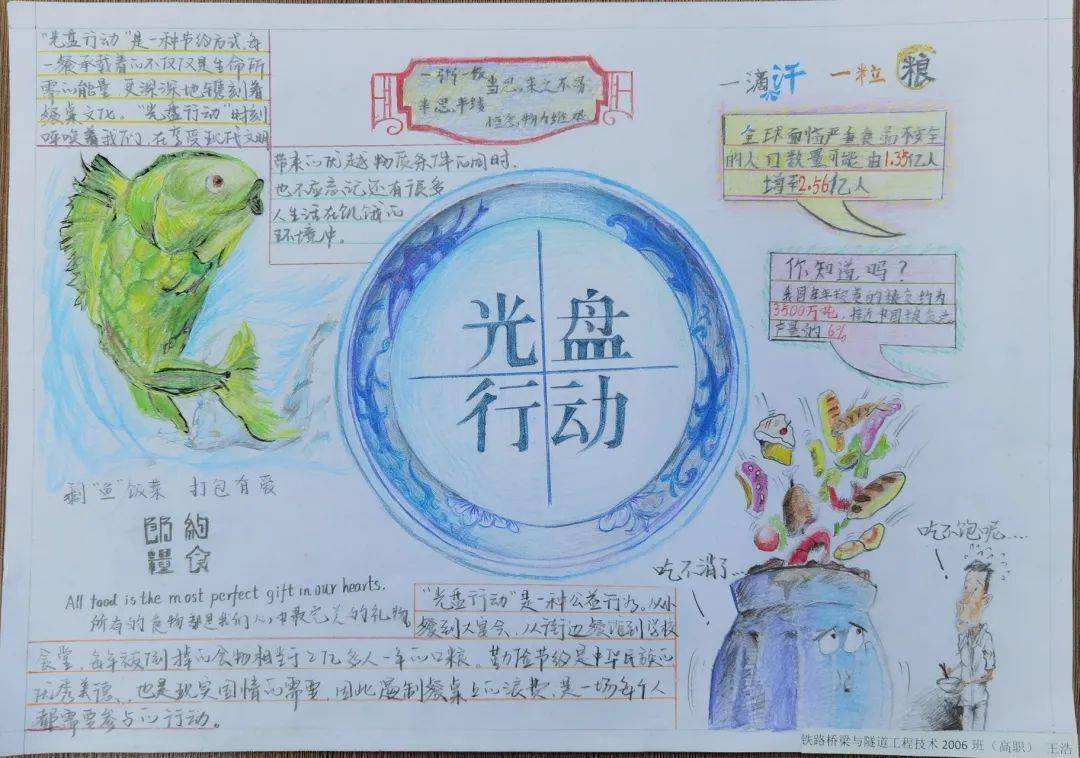 "光盘行动"是一种节约方式,每
一餐承载着的不仅仅是生命所
需的能量,更深深地镌刻着
餐桌文化。"光盘行动"时刻
呼唤着我们,在享受现代文明
带来的优越物质条件的同时,
也不应忘记还有很多
人生活在饥饿的
环境中。
一粥一饭 当思来之不易
半思半缕 恒念物力维艰
一滴汗 一粒粮
全球面临严重食品不安全
的人口数量可能由1.35亿人
增至2.56亿人
你知道吗?
我国每年浪费的粮食约为
3500万吨,接近中国粮食总
产量的6%
光盘
行动
剩"鱼"饭菜 打包有爱
節約
糧食
All food is the most perfect gift in our hearts.
所有的食物都是我们心中最完美的礼物
"光盘行动"是一种公益行为。从小
餐到大宴会,从街边餐馆到学校
食堂,每年被倒掉的食物相当于2亿多人一年的口粮。勤俭节约是中华民族的
优秀美德,也是现实国情的需要,因此遏制餐桌上的浪费,是一场每个人
都需要参与的行动。
吃不消了...
吃不饱呢...
铁路桥梁与隧道工程技术2006班(高职) 王浩